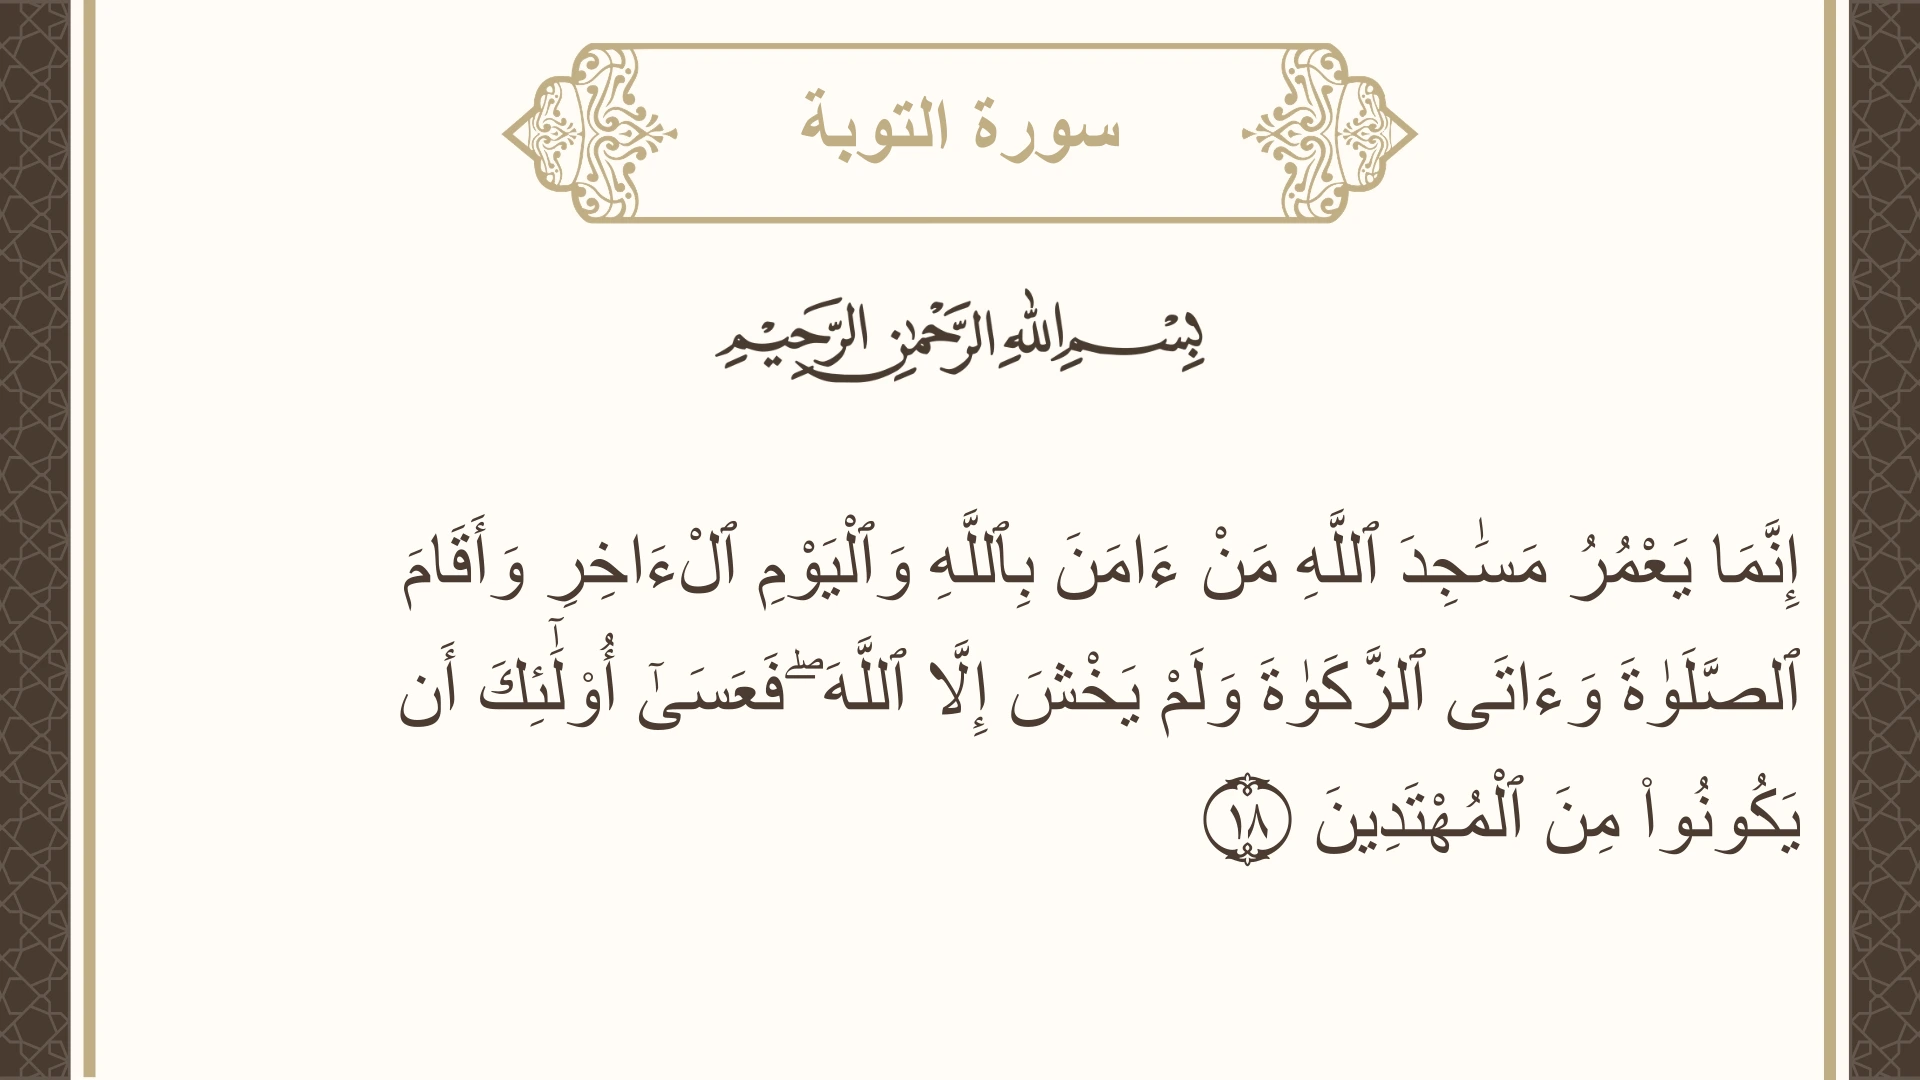 سورة التوبة
بِسْمِ اللهِ الرَّحْمٰنِ الرَّحِيْمِ
إِنَّمَا يَعْمُرُ مَسَٰجِدَ ٱللَّهِ مَنْ ءَامَنَ بِٱللَّهِ وَٱلْيَوْمِ ٱلْءَاخِرِ وَأَقَامَ
ٱلصَّلَوٰةَ وَءَاتَى ٱلزَّكَوٰةَ وَلَمْ يَخْشَ إِلَّا ٱللَّهَ ۖ فَعَسَىٰٓ أُو۟لَٰٓئِكَ أَن
يَكُونُوا۟ مِنَ ٱلْمُهْتَدِينَ ١٨